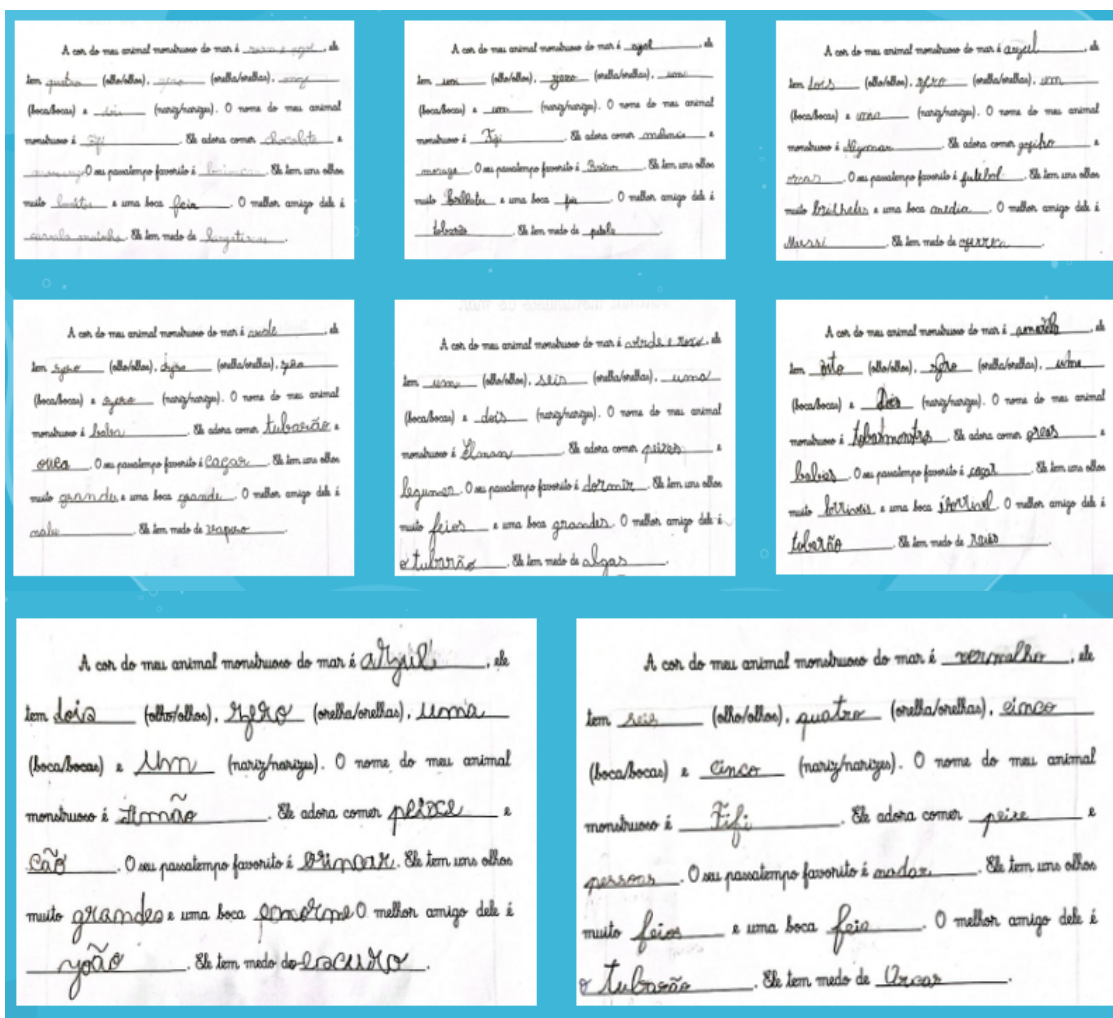 A cor do meu animal monstruoso do mar é roxa e azul, ele
tem quatro (olho/olhos), zero (orelha/orelhas), onze
(boca/bocas) e dois (nariz/narizes). O nome do meu animal
monstruoso é Fifi. Ele adora comer chocolate e
O seu passatempo favorito é Ele tem uns olhos
muito e uma boca feia. O melhor amigo dele é
Ele tem medo de
A cor do meu animal monstruoso do mar é azul, ele
tem um (olho/olhos), zero (orelha/orelhas), uma
(boca/bocas) e um (nariz/narizes). O nome do meu animal
monstruoso é Ele adora comer e
O seu passatempo favorito é Ele tem uns olhos
muito e uma boca O melhor amigo dele é
Ele tem medo de
A cor do meu animal monstruoso do mar é azul, ele
tem dois (olho/olhos), zero (orelha/orelhas), um
(boca/bocas) e uma (nariz/narizes). O nome do meu animal
monstruoso é Neymar. Ele adora comer e
O seu passatempo favorito é futebol. Ele tem uns olhos
muito e uma boca O melhor amigo dele é
Messi. Ele tem medo de
A cor do meu animal monstruoso do mar é ele
tem zero (olho/olhos), (orelha/orelhas), zero
(boca/bocas) e zero (nariz/narizes). O nome do meu animal
monstruoso é Ele adora comer tubarão e
O seu passatempo favorito é caçar. Ele tem uns olhos
muito grandes e uma boca grande. O melhor amigo dele é
Ele tem medo de
A cor do meu animal monstruoso do mar é ele
tem um (olho/olhos), seis (orelha/orelhas), uma
(boca/bocas) e dois (nariz/narizes). O nome do meu animal
monstruoso é Ele adora comer peixes e
legumes. O seu passatempo favorito é dormir. Ele tem uns olhos
muito feios e uma boca grandes. O melhor amigo dele é
o tubarão. Ele tem medo de algas.
A cor do meu animal monstruoso do mar é ele
tem oito (olho/olhos), zero (orelha/orelhas), uma
(boca/bocas) e Dois (nariz/narizes). O nome do meu animal
monstruoso é Ele adora comer e
O seu passatempo favorito é caçar. Ele tem uns olhos
muito e uma boca O melhor amigo dele é
Ele tem medo de
A cor do meu animal monstruoso do mar é ele
tem dois (olho/olhos), zero (orelha/orelhas), uma
(boca/bocas) e Um (nariz/narizes). O nome do meu animal
monstruoso é Ele adora comer e
cão. O seu passatempo favorito é brincar. Ele tem uns olhos
muito grandes e uma boca enorme O melhor amigo dele é
joão. Ele tem medo do escuro.
A cor do meu animal monstruoso do mar é vermelho, ele
tem seis (olho/olhos), quatro (orelha/orelhas), cinco
(boca/bocas) e cinco (nariz/narizes). O nome do meu animal
monstruoso é Fifi. Ele adora comer peixe e
pessoas. O seu passatempo favorito é nadar. Ele tem uns olhos
muito feios e uma boca feia. O melhor amigo dele é
o tubarão. Ele tem medo de Orcas.